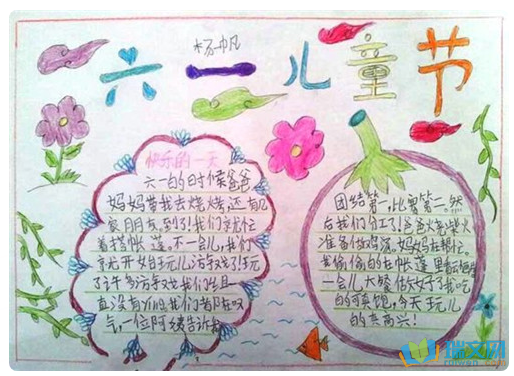 六一儿童节
杨帆
快乐的一天
六一的时候爸爸
妈妈带我去烧烤,还有几
家朋友,到了!我们就忙
着搭帐篷。不一会儿,我们
就开始玩儿游戏了!玩
了许多游戏我们坐
直没有 我们都在叹
气,一位阿姨告诉
团结第一,比赛第二。然
后我们分工了!爸爸烧柴火
准备做鸡汤,妈妈在帮忙。
我偷偷的在帐篷里
一会儿,大餐做好了我吃
的可真饱,今天玩儿
的真高兴!
瑞文网